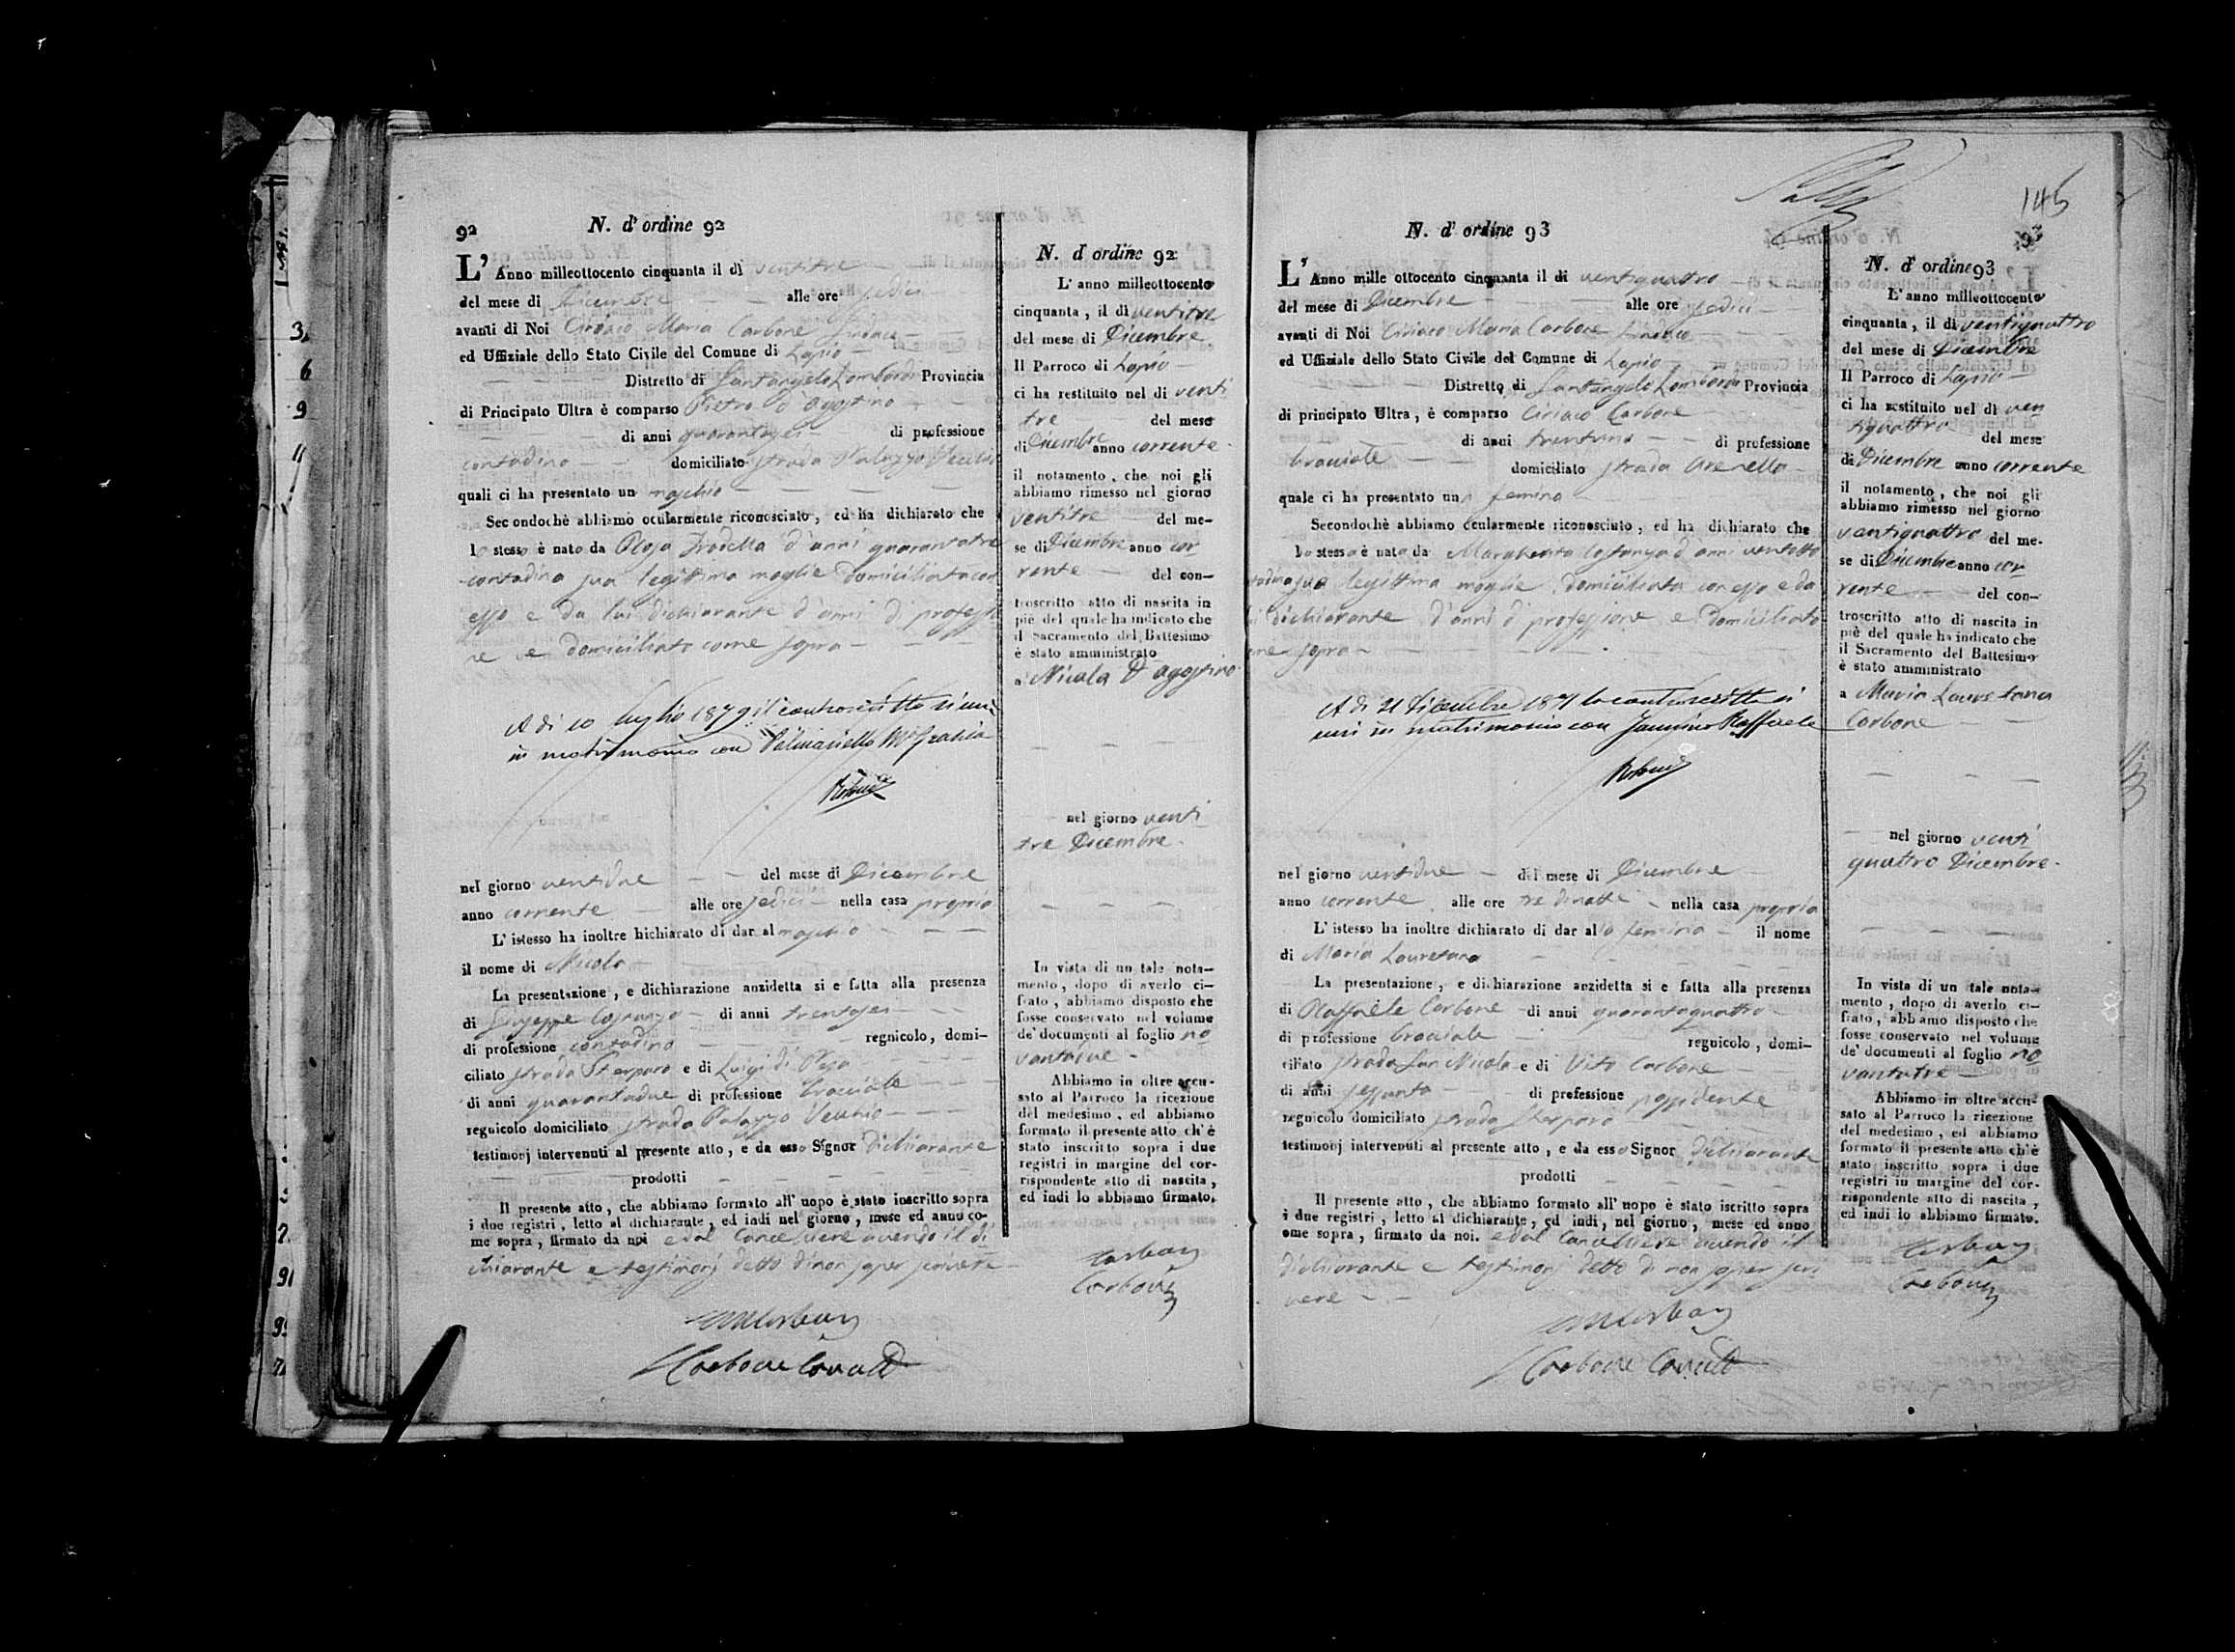 92 N. d' ordine 92
L' Anno milleottocento cinquanta il dì ventitre
del mese di Dicembre alle ore sedici
avanti di Noi Ciriaco Maria Carbone Sindaco
ed Uffiziale dello Stato Civile del Comune di Lapio
Distretto di Santangelo Lombardi Provincia
di Principato Ultra è comparso Pietro d'Agostino
di anni quarantasei di professione
contadino domiciliato strada Palazzo Vecchio
quali ci ha presentato un maschio
Secondochè abbiamo ocularmente riconosciuto, ed ha dichiarato che
lo stesso è nato da d'anni quarantatre
contadina sua legittima moglie domiciliata con
esso e da lui dichiarante d'anni di professio
ne e domiciliato come sopra
A dì 10 luglio 1879 il controscritto si unì
in matrimonio con Palmariello Ma Grazia
nel giorno ventidue del mese di Dicembre
anno corrente alle ore sedici nella casa propria
L' istesso ha inoltre hichiarato di dar al maschio
il nome di Nicola
La presentazione, e dichiarazione anzidetta si e fatta alla presenza
di Giuseppe Costanzo di anni trentasei
di professione contadino regnicolo, domi-
ciliato strada e di Luigi di
di anni quarantadue di professione bracciale
regnicolo domiciliato strada Palazzo Vecchio
testimonj intervenuti al presente atto, e da esso Signor dichiarante
prodotti
Il presente atto, che abbiamo formato all' uopo è stato inscritto sopra
i due registri, letto al dichiarante, ed indi nel giorno, mese ed anno co-
me sopra, firmato da noi e dal Cancelliere avendo il di
chiarante e testimonj detto di non saper scrivere
Carbone
N. d ordine 92
L' anno milleottocento
cinquanta, il dì ventitre
del mese di Dicembre
Il Parroco di Lapio
ci ha restituito nel di venti
tre del mese
di Dicembre anno corrente
il notamento, che noi gli
abbiamo rimesso nel giorno
ventitre del me-
se di Dicembre anno cor
rente del con-
troscritto atto di nascita in
piè del quale ha indicato che
il Sacramento del Battesimo
è stato amministrato
a Nicola D'Agostino
nel giorno venti
tre Dicembre
In vista di un tale nota-
mento, dopo di averlo ci-
frato, abbiamo disposto che
fosse conservato nel volume
de' documenti al foglio no
vantadue
Abbiamo in oltre accu-
sato al Parroco la ricezione
del medesimo, ed abbiamo
formato il presente atto ch' è
stato inscritto sopra i due
registri in margine del cor-
rispondente atto di nascita,
ed indi lo abbiamo firmato.
Carbone
145
N. d' ordine 93 93
L' Anno mille ottocento cinquanta il di ventiquattro
del mese di Dicembre alle ore sedici
avanti di Noi Ciriaco Maria Carbone Sindaco
ed Uffiziale dello Stato Civile del Comune di Lapio
Distretto di Santangelo Lombardi Provincia
di principato Ultra, è comparso Ciriaco Carbone
di anni trentuno di professione
bracciale domiciliato strada Arenella
quale ci ha presentato una femina
Secondochè abbiamo ocularmente riconosciuto, ed ha dichiarato che
la stessa è nata da Margherita Costanza d'anni ventotto
tadina sua legittima moglie domiciliata con esso e da
dichiarante d'anni di professione e domiciliato
me sopra
A dì 21 Dicembre 1871 la controscritta si
unì in matrimonio con Jannino Raffaele
nel giorno ventidue del mese di Dicembre
anno corrente alle ore tre di notte nella casa propria
L' istesso ha inoltre dichiarato di dar alla femina il nome
di Maria Lauretana
La presentazione, e dichiarazione anzidetta si e fatta alla presenza
di Raffaele Carbone di anni quarantaquattro
di professione bracciale regnicolo, domi-
ciliato strada San Nicola e di Vito Carbone
di anni sessanta di prefessione possidente
regnicolo domiciliato strada
testimonj intervenuti al presente atto, e da esso Signor dichiarante
prodotti
Il presente atto, che abbiamo formato all' uopo è stato iscritto sopra
i due registri, letto al dichiarante, ed indi, nel giorno, mese ed anno
ome sopra, firmato da noi. e dal Cancelliere avendo il
dichiarante e testimonj detto di non saper scri
vere
Carbone
N. d' ordine 93
L' anno milleottocento
cinquanta, il di ventiquattro
del mese di Dicembre
Il Parroco di Lapio
ci ha restituito nel dì ven
tiquattro del mese
di Dicembre anno corrente
il notamento, che noi gli
abbiamo rimesso nel giorno
ventiquattro del me-
se di Dicembre anno cor
rente del con-
troscritto atto di nascita in
piè del quale ha indicato che
il Sacramento del Battesimo
è stato amministrato
a Maria Lauretana
Carbone
nel giorno venti
quattro Dicembre
In vista di un tale nota-
mento, dopo di averlo ci-
frato, abbiamo disposto che
fosse conservato nel volume
de' documenti al foglio no
vantatre
Abbiamo in oltre accu-
sato al Parroco la ricezione
del medesimo, ed abbiamo
formato il presente atto ch'è
stato inscritto sopra i due
registri in margine del cor-
rispondente atto di nascita,
ed indi lo abbiamo firmato.
Carbone